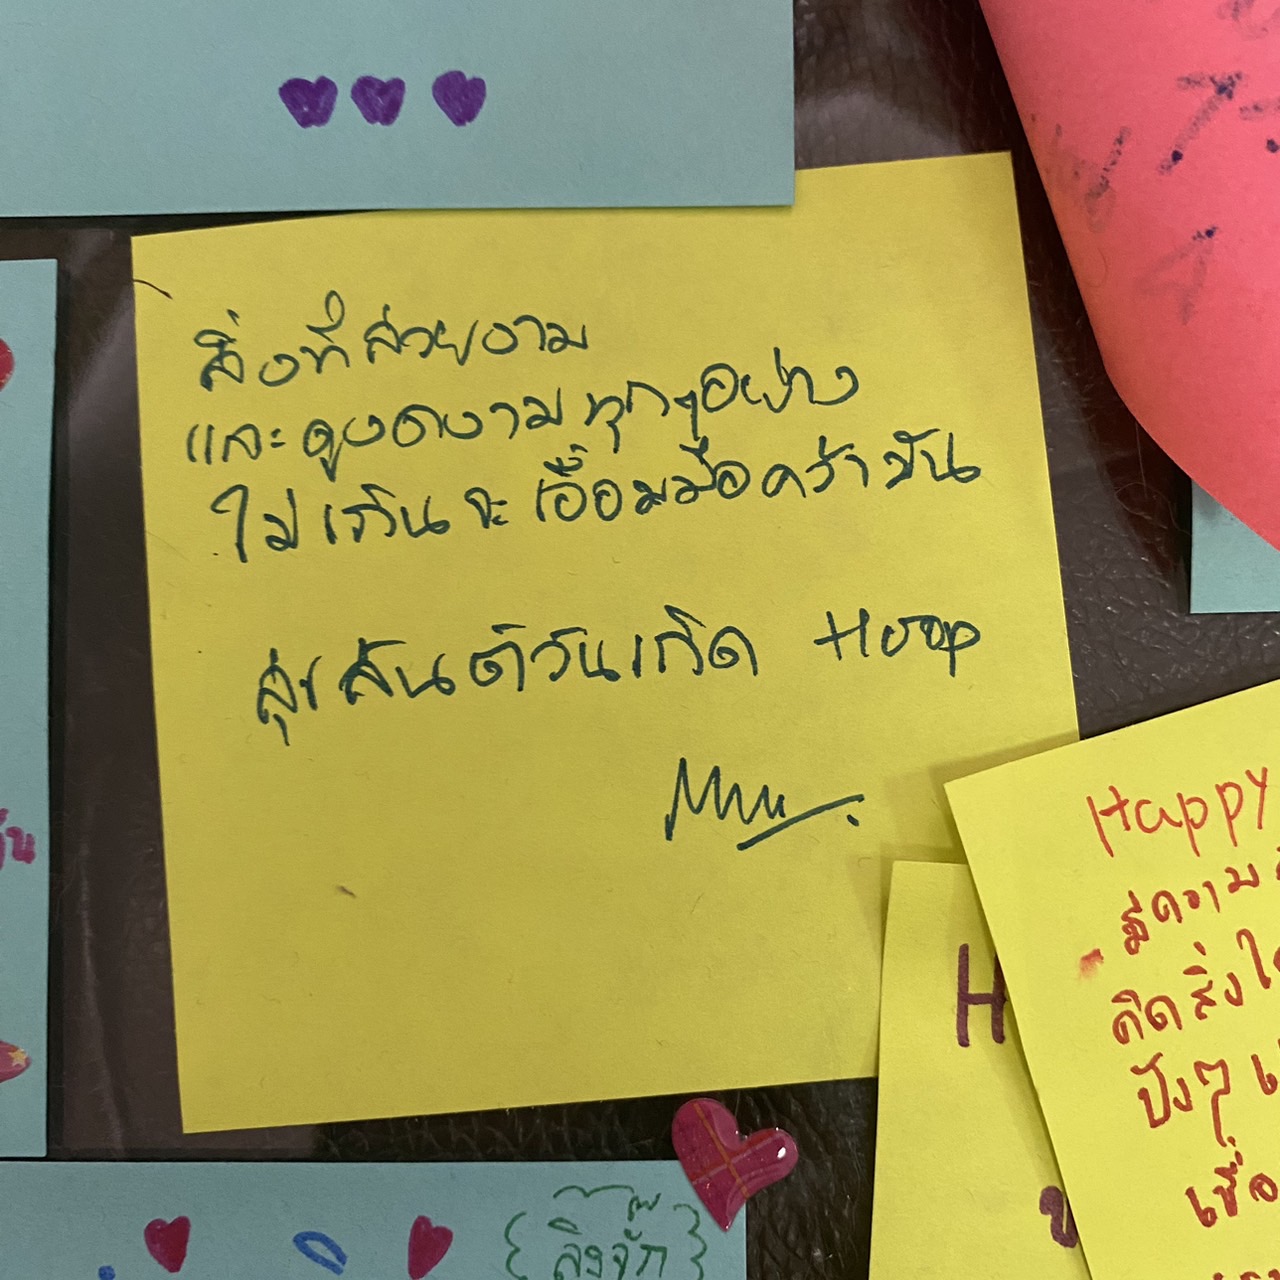 สิ่งที่สวยงาม
และดูงดงามทุกๆอย่าง
ไม่เกินจะเอื้อมมือคว้ามัน
สุขสันต์วันเกิด Hoop
Happy
มีความ
คิดสิ่ง
ปังๆ
เชื่อ
H
ลิงจั๊ก